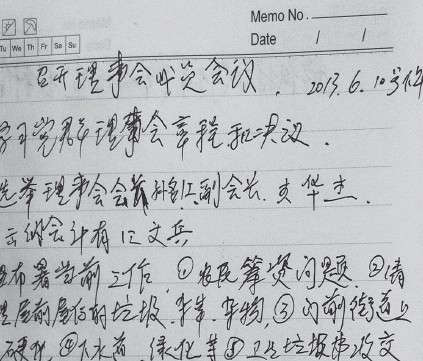 Memo No.
Tu We Th Fr Sa Su
Date / /
召开理事会成员会议. 2013.6.10号
学习党群理事会章程和决议.
选举理事会会长 孙名江副会长. 史华杰.
云纳会计有江文兵
布署当前工作. ①农民筹资问题. ②清
屋前屋后的垃圾、杂草、杂物, ③门前街道
硬化, ④下水道、绿化等⑤卫生垃圾